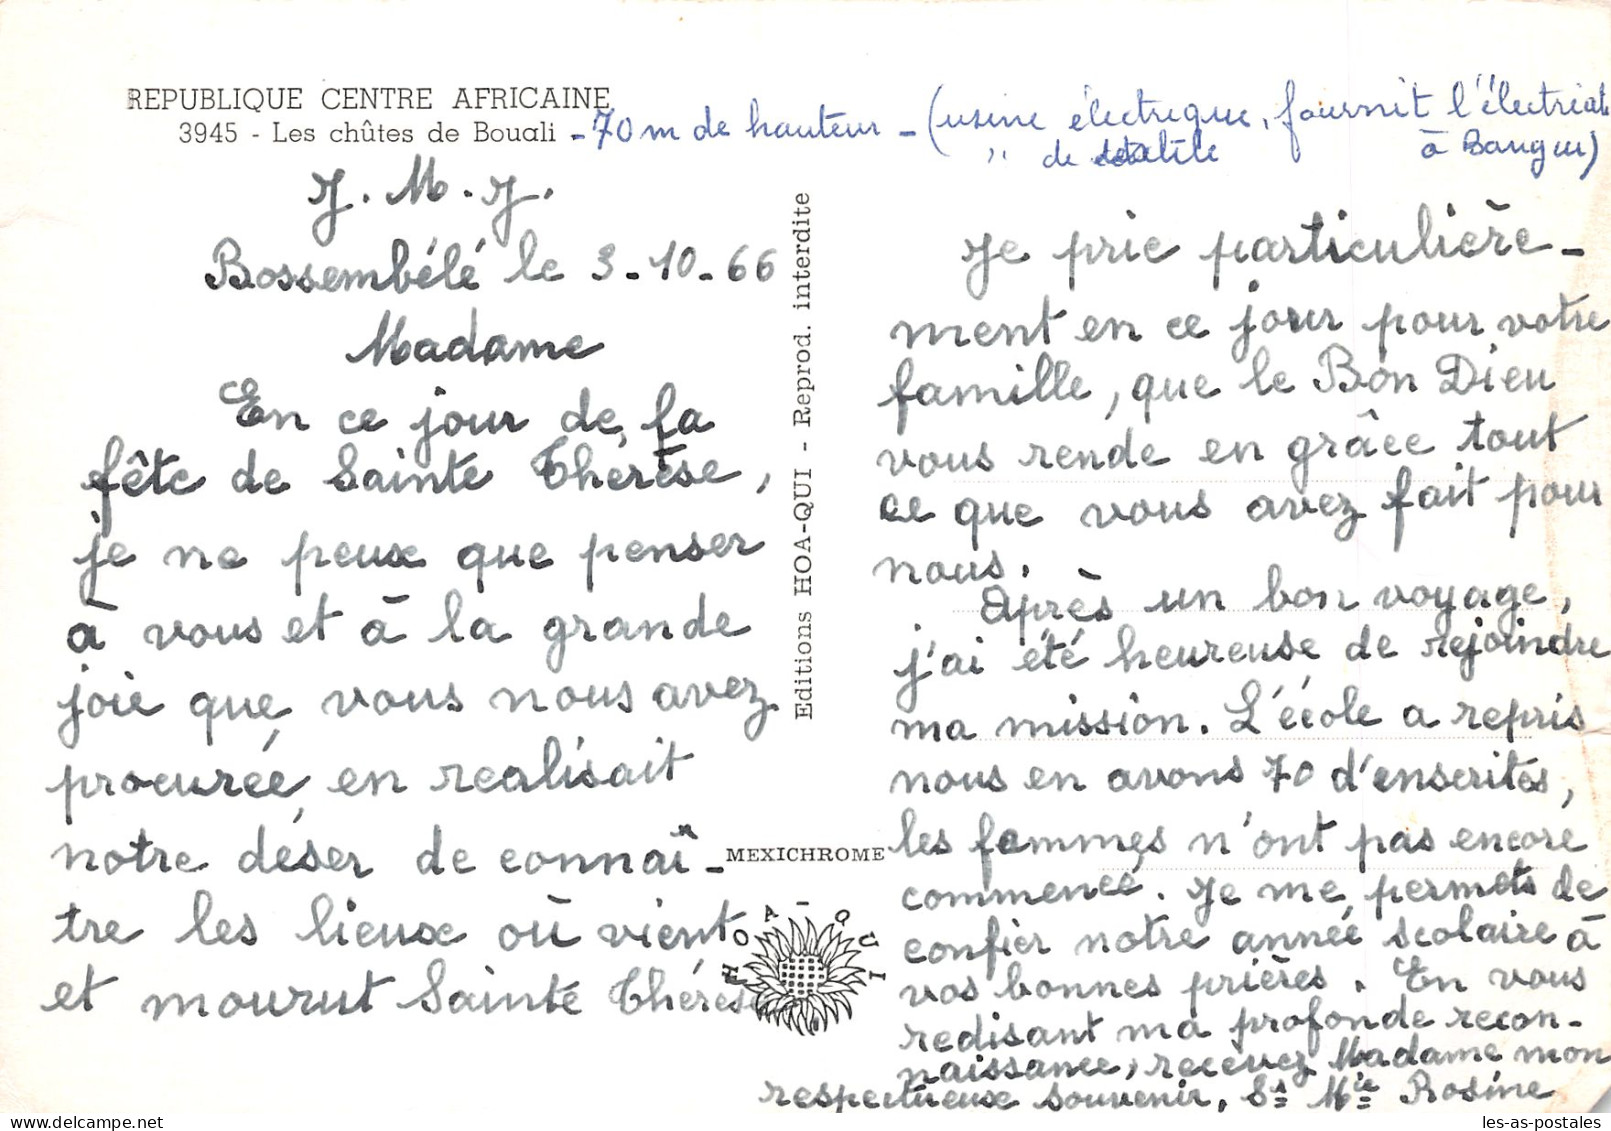 REPUBLIQUE CENTRE AFRICAINE
3945 - Les chûtes de Bouali - 70 m de hauteur - (usine électrique, fournit l'électricité
" de à Bangui)
J. M. J.
Bossembélé le 3-10-66
Madame
En ce jour de la
fête de Sainte Thérèse,
je ne peux que penser
à vous et à la grande
joie que vous nous avez
procurée, en realisait
notre déser de connaî-
tre les lieux où vient
et mourut Sainte Thérèse
Editions HOA-QUI - Reprod. interdite
MEXICHROME
HOA-QUI
Je prie particulière-
ment en ce jour pour votre
famille, que le Bon Dieu
vous rende en grâce tout
ce que vous avez fait pour
nous.
Après un bon voyage,
j'ai été heureuse de rejoindre
ma mission. L'école a repris
nous en avons 70 d'enscrites,
les femmes n'ont pas encore
commencé. Je me permets de
confier notre année scolaire à
vos bonnes prières. En vous
redisant ma profonde recon-
naissance, recevez Madame mon
respectueuse souvenir, Sr Mie Rosine
les-as-postales